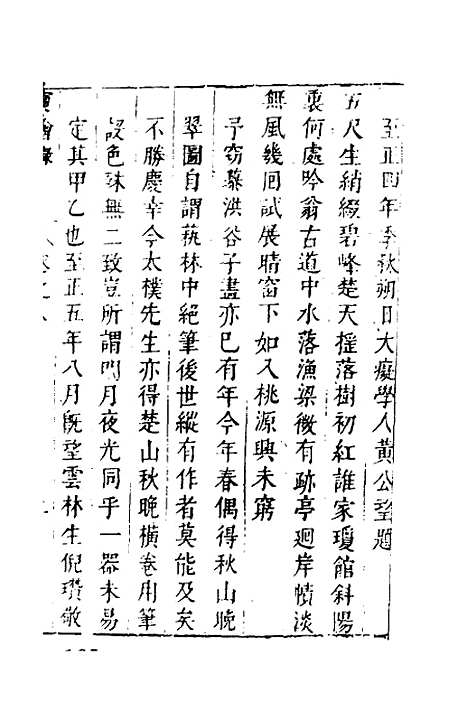 至正四年季秋朔日大癡學人黃公望題
五尺生綃綴碧峰楚天搖落樹初紅誰家瓊館斜陽
裏何處吟翁古道中水落漁梁微有跡亭迴岸幘淡
無風幾囘試展晴窗下如入桃源興未窮
予窃慕洪谷子畫亦已有年今年春偶得秋山晚
翠圖自謂藝林中絕筆後世縱有作者莫能及矣
不勝慶幸今太樸先生亦得楚山秋晚橫卷用筆
設色殊無二致豈所謂明月夜光同乎一器未易
定其甲乙也至正五年八月既望雲林生倪瓚敬